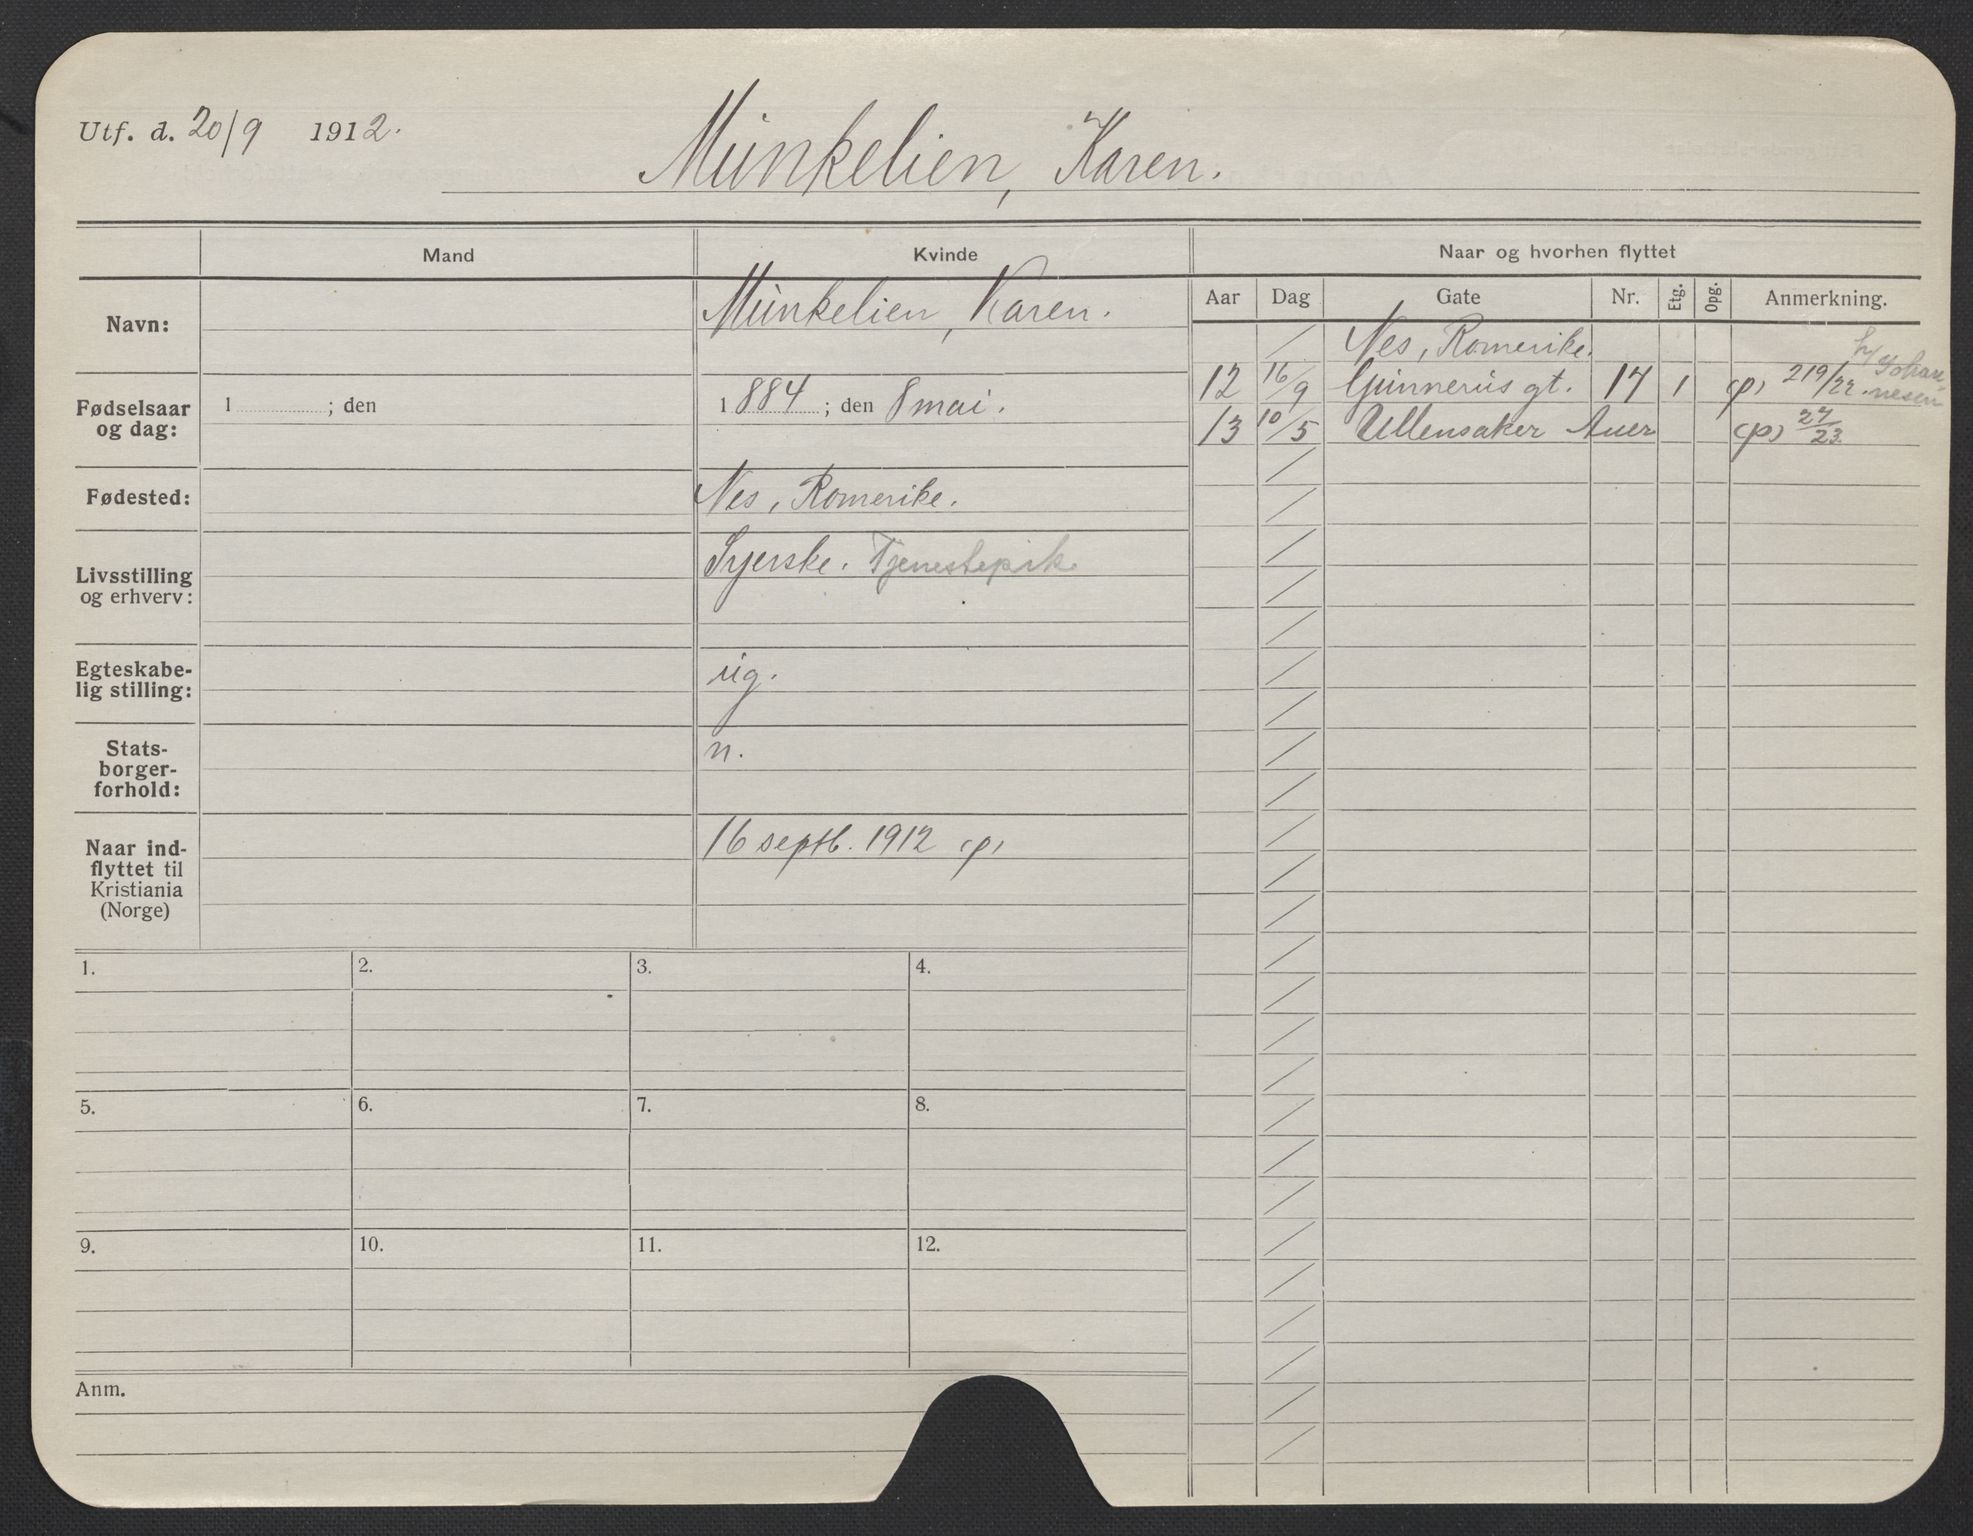 Utf. d. 20/9 1912.
Munkelien, Karen.
Mand
Kvinde
Naar og hvorhen flyttet
Aar Dag Gate Nr. Etg. Opg. Anmerkning.
Navn: Munkelien, Karen.
Fødselsaar og dag: 1 ; den 1884 ; den 8 mai.
Fødested: Nes, Romerike.
Livsstilling og erhverv: Syerske. Tjenestepik
Egteskabe-
lig stilling: ug.
Stats-
borger-
forhold: n.
Naar ind-
flyttet til
Kristiania
(Norge) 16 septb. 1912 (p)
Nes, Romerike.
h/ Johan-
nesen
12 16/9 Gunnerus gt. 17 1 (p) 219/22.
13 10/5 Ullensaker Auer (p) 27/23.
1. 2. 3. 4.
5. 6. 7. 8.
9. 10. 11. 12.
Anm.